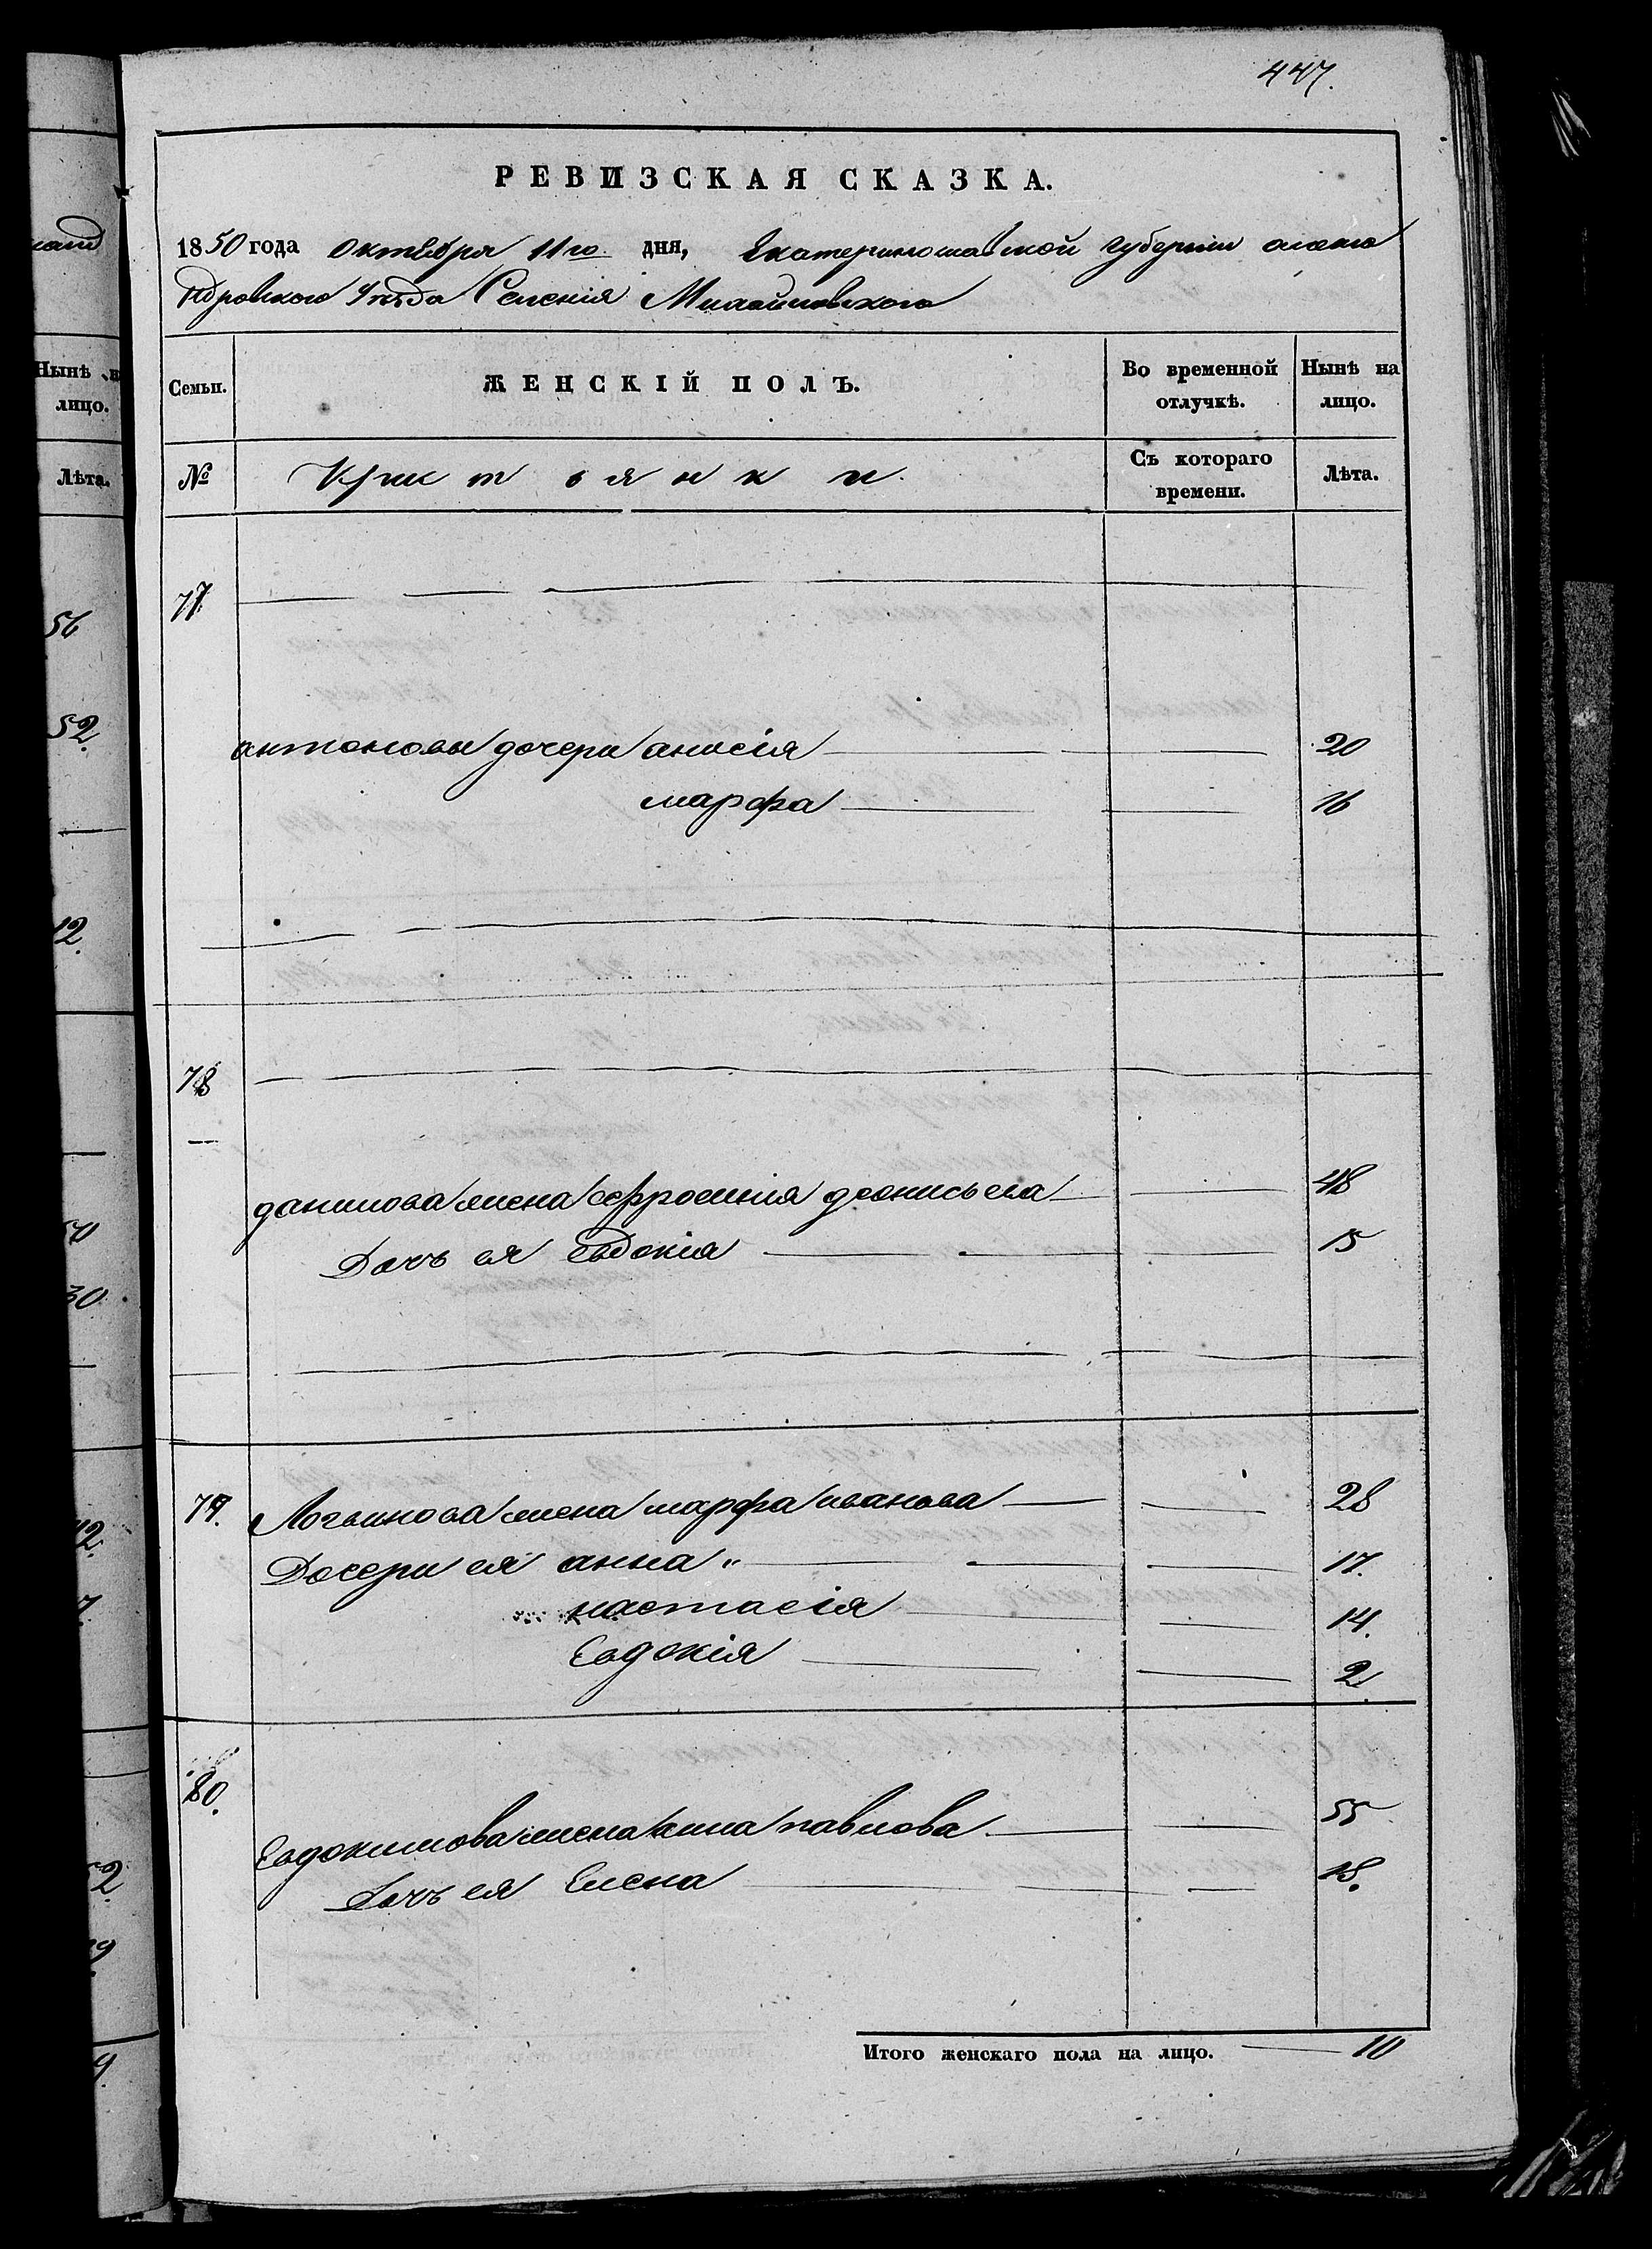 447.
РЕВИЗСКАЯ СКАЗКА.
1850 года Октября 11го дня, Екатеринославской губернии алексан
ндровского Уезда Селения Михайловского
Семьи. ЖЕНСКІЙ ПОЛЪ. Во временной отлучкѣ. Нынѣ на лицо.
№ Крестьянки. Съ котораго времени. Лѣта.
77.
антоновы дочери анисія 20
марфа 16
78
данилова жена ефросинія деонисьева 48
Дочь ея евдокія 15
79. Логвинова жена марфа иванова 28
Дочери ея анна " 17.
настасія 14.
Евдокія 2
80.
Евдокимова жена анна павлова 55
Дочь ея Елена 18.
Итого женскаго пола на лицо. 10
Нынѣ на
лицо.
Лѣта.
56
52.
12.
30